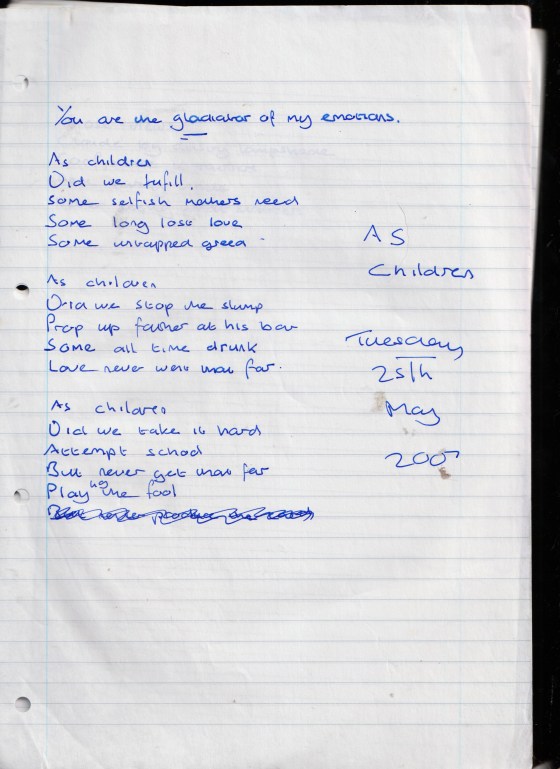 You are the gladiator of my emotions.
As children
Did we fulfill.
Some selfish mothers need
Some long lost love
Some untapped greed
As children
Did we stop the slump
Prop up father at his bar
Some all time drunk
Love never went that far.
As children
Did we take it hard
Attempt school
But never get that far
Playing the fool
AS
Children
Tuesday
25th
May